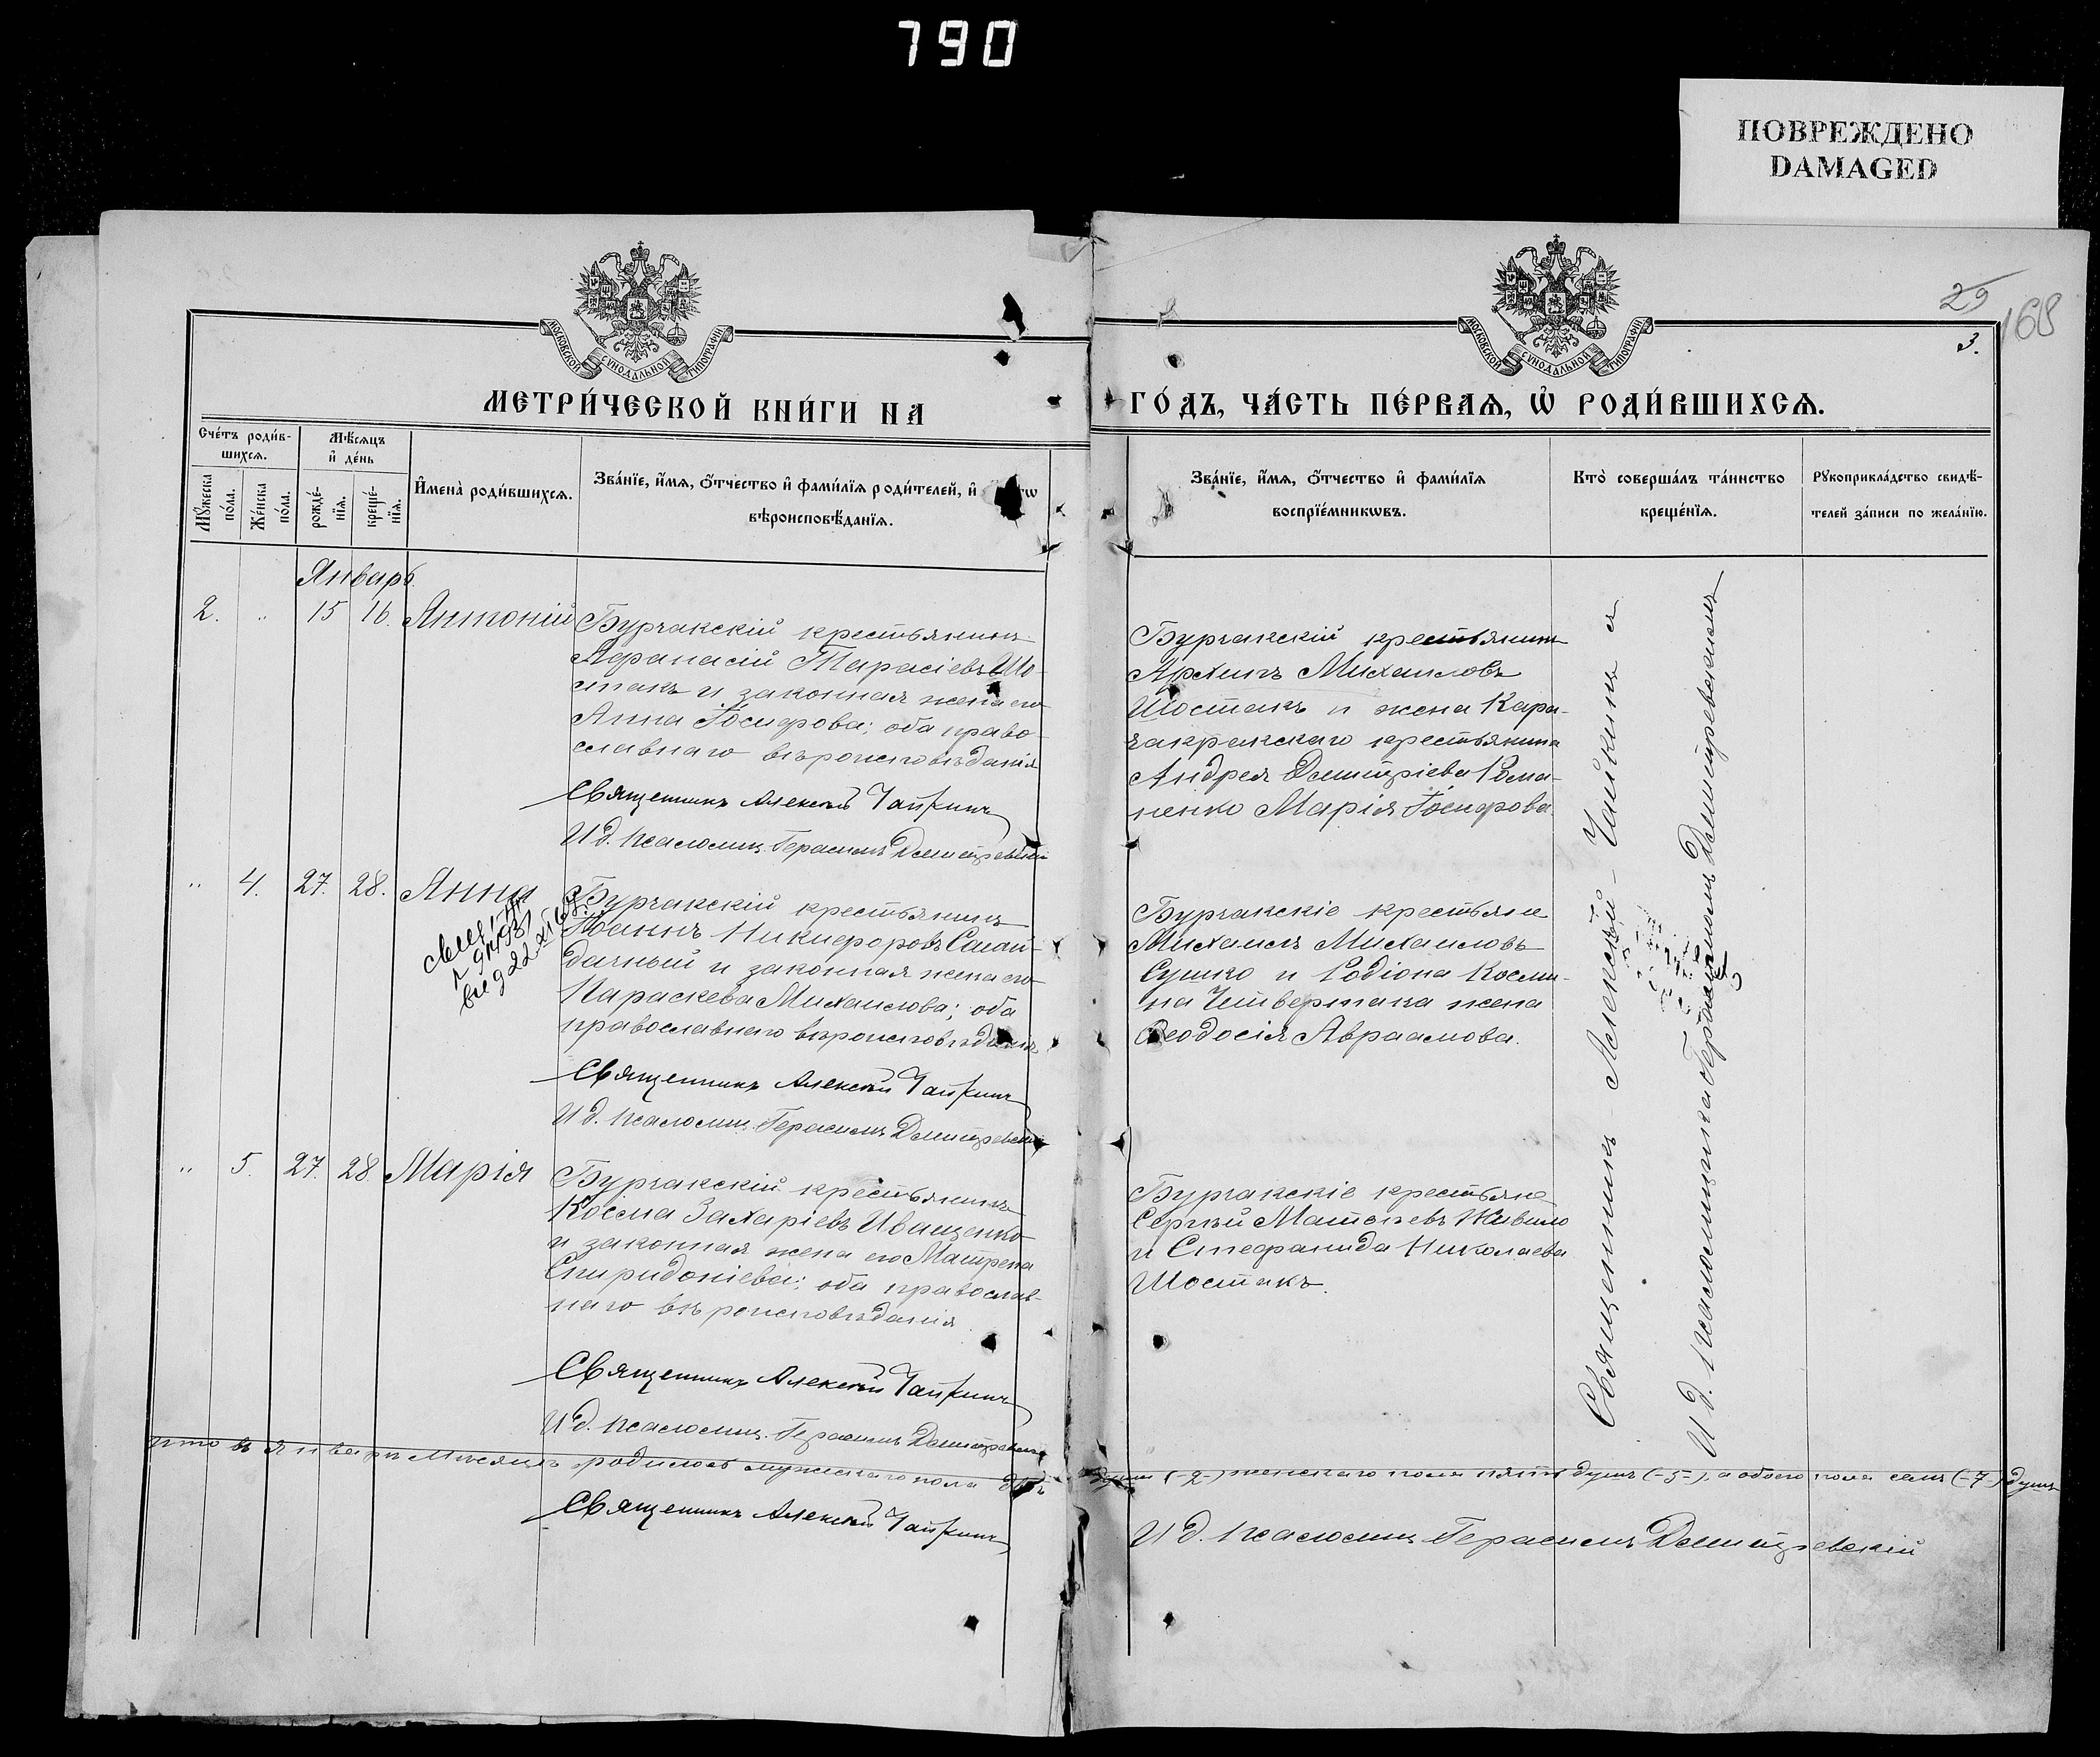 790
ПОВРЕЖДЕНО
DAMAGED
29
168
3.
МОСКОВСКОЙ СѴНОДАЛЬНОЙ ТИПОГРАФІИ
МОСКОВСКОЙ СѴНОДАЛЬНОЙ ТИПОГРАФІИ
МЕТРИ́ЧЕСКОЙ КНИ́ГИ НА
ГО́ДЪ, ЧА́СТЬ ПЕ́РВАЯ, Ѡ РОДИ́ВШИХСЯ.
Сче́тъ роди́в-
шихся.
Мѣ́сяцъ
и де́нь
Му́жеска
по́ла.
Же́нска
по́ла.
рожде́-
нія.
креще́-
нія.
Имена̀ роди́вшихся.
Зва́ніе, и́мя, ѻ́тчество и фами́лія роди́телей, и
вѣроисповѣ́данія.
Зва́ніе, и́мя, ѻ́тчество и фами́лія
воспріе́мникѡвъ.
Кто̀ соверша́лъ та́инство
креще́нія.
Рукоприкла́дство свидѣ́-
телей за́писи по жела́нію.
Январь.
2. „ 15 16. Антоній
Бурчакскій крестьянинъ
Афанасій Тарасіевъ Шо-
стакъ и законная жена его
Анна Іосифова; оба право-
славнаго вѣроисповѣданія
Священникъ Алексѣй Чайкинъ
И д. псаломщ. Герасимъ Димитревскій
Бурчакскій крестьянинъ
Архипъ Михаиловъ
Шостакъ и жена Кара-
чакракскаго крестьянина
Андрея Димитріева Рома-
ненко Марія Іосифова.
„ 4. 27. 28. Анна
Бурчакскій крестьянинъ
Іоаннъ Никифоровъ Сагай-
дачный и законная жена его
Параскева Михаилова; оба
православнаго вѣроисповѣданія
Священникъ Алексѣй Чайкинъ
И д. псаломщ. Герасимъ Димитревскій
Бурчакскіе крестьяне
Михаилъ Михаиловъ
Сушко и Родіона Косми-
на Четвертака жена
Ѳеодосія Авраамова.
„ 5. 27. 28. Марія
Бурчакскій крестьянинъ
Косма Захаріевъ Иващенко
и законная жена его Матрена
Спиридоніева; оба православ-
наго вѣроисповѣданія
Священникъ Алексѣй Чайкинъ
И д. псаломщ. Герасимъ Димитревскій
Бурчакскіе крестьяне
Сергѣй Матѳіевъ Живило
и Стефанида Николаева
Шостакъ.
Священникъ Алексѣй Чайкинъ и
И д. псаломщика Герасимъ Димитревскій
Что въ январѣ мѣсяцѣ родилось мужескаго пола двѣ души (-2-) женскаго пола пять душъ (-5-), а обоего пола семь (-7-) душъ
Священникъ Алексѣй Чайкинъ
И д. псаломщ. Герасимъ Димитревскій